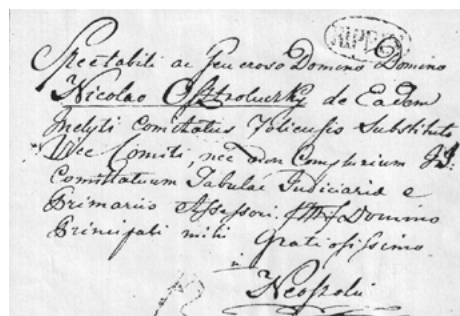 Spectabili ac Generoso Domino Domino
Nicolao Osztroluczky de Eadem
Inclyti Comitatus Zoliensis Substituto
Vice Comiti, nec non Complurium
Comitatuum Tabulae Judiciariae
Primario Assessori Domino
Principali mihi Gratiosissimo
Neosolii